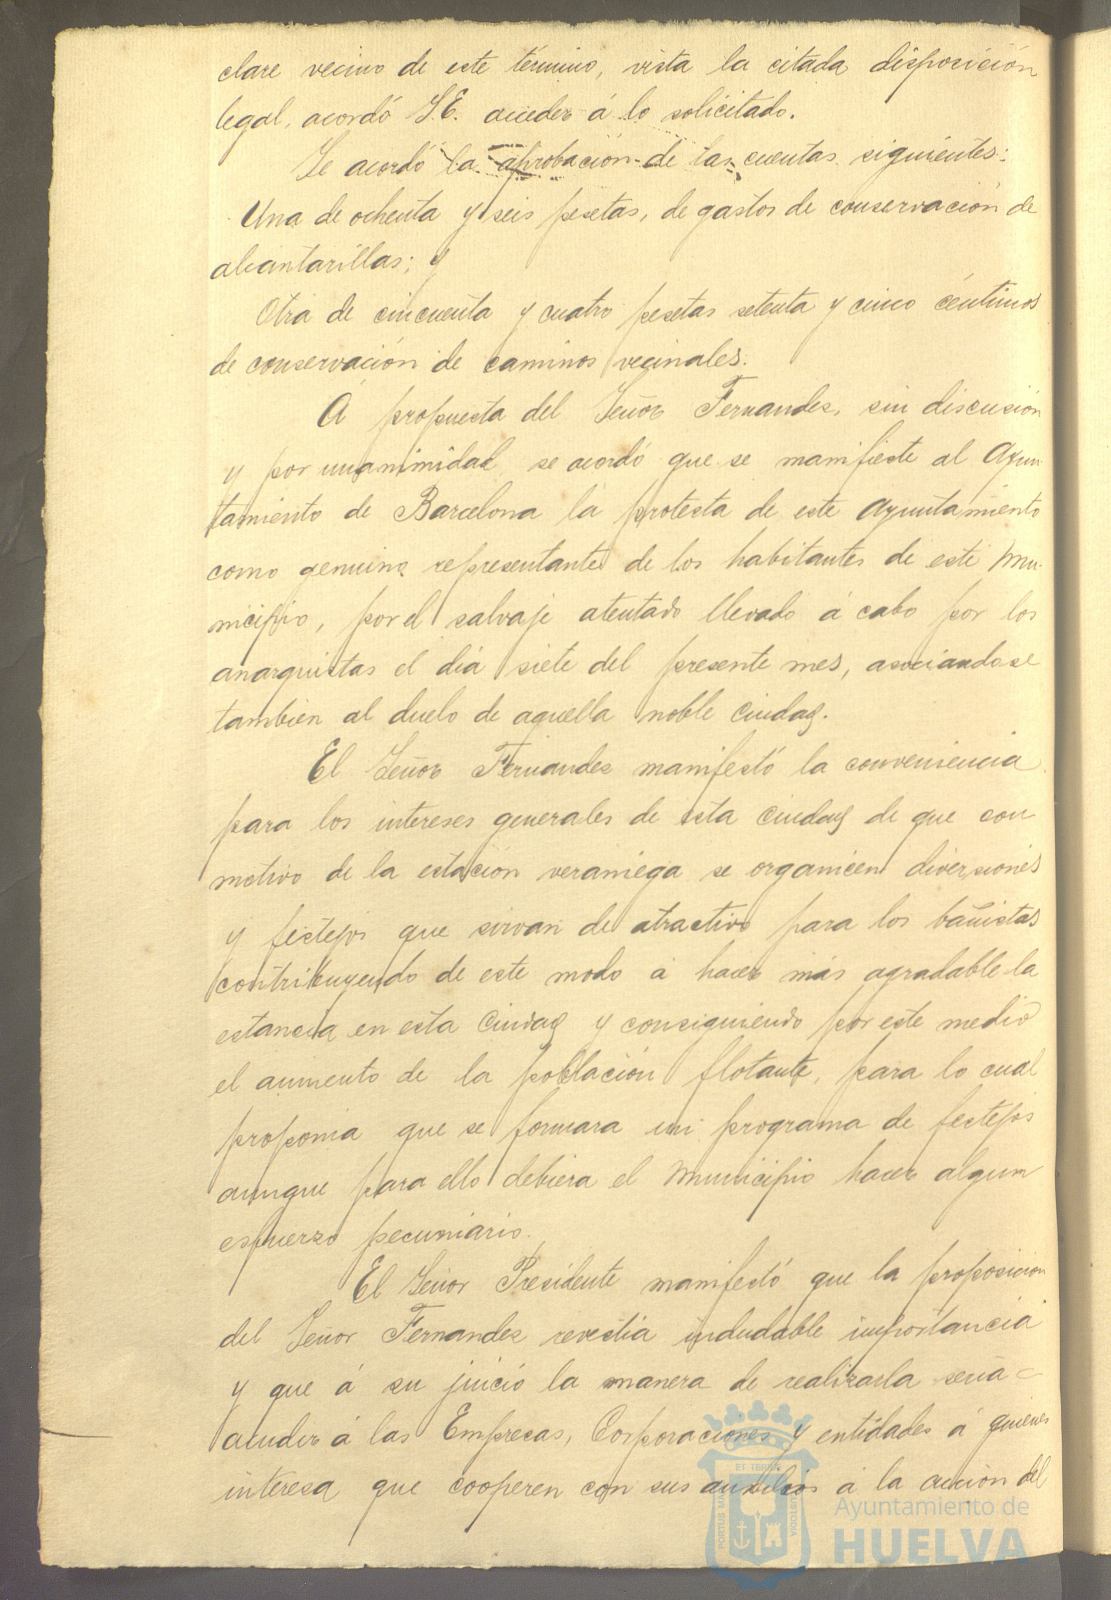 clare vecino de este término, vista la citada disposición
legal, acordó S.E. acceder á lo solicitado.
Se acordó la aprobación de las cuentas siguientes:
Una de ochenta y seis pesetas, de gastos de conservación de
alcantarillas; y
Otra de cincuenta y cuatro pesetas setenta y cinco céntimos
de conservación de caminos vecinales.
A propuesta del Señor Fernandez, sin discusión
y por unanimidad, se acordó que se manifieste al Ayun-
tamiento de Barcelona la protesta de este Ayuntamiento
como genuino representante de los habitantes de este Mu-
nicipio, por el salvaje atentado llevado á cabo por los
anarquistas el día siete del presente mes, asociandose
tambien al duelo de aquella noble Ciudad.
El Señor Fernandez manifestó la conveniencia
para los intereses generales de esta Ciudad de que con
motivo de la estación veraniega se organicen diversiones
y festejos que sirvan de atractivo para los bañistas
contribuyendo de este modo á hacer más agradable la
estancia en esta Ciudad y consiguiendo por este medio
el aumento de la población flotante, para lo cual
proponia que se formara un programa de festejos
aunque para ello debiera el Municipio hacer algun
esfuerzo pecuniario.
El Señor Presidente manifestó que la proposición
del Señor Fernandez revestía indudable importancia
y que á su juició la manera de realizarla sería
acudir á las Empresas, Corporaciones y entidades á quienes
interesa que cooperen con sus auxilios á la acción del
Ayuntamiento de
HUELVA